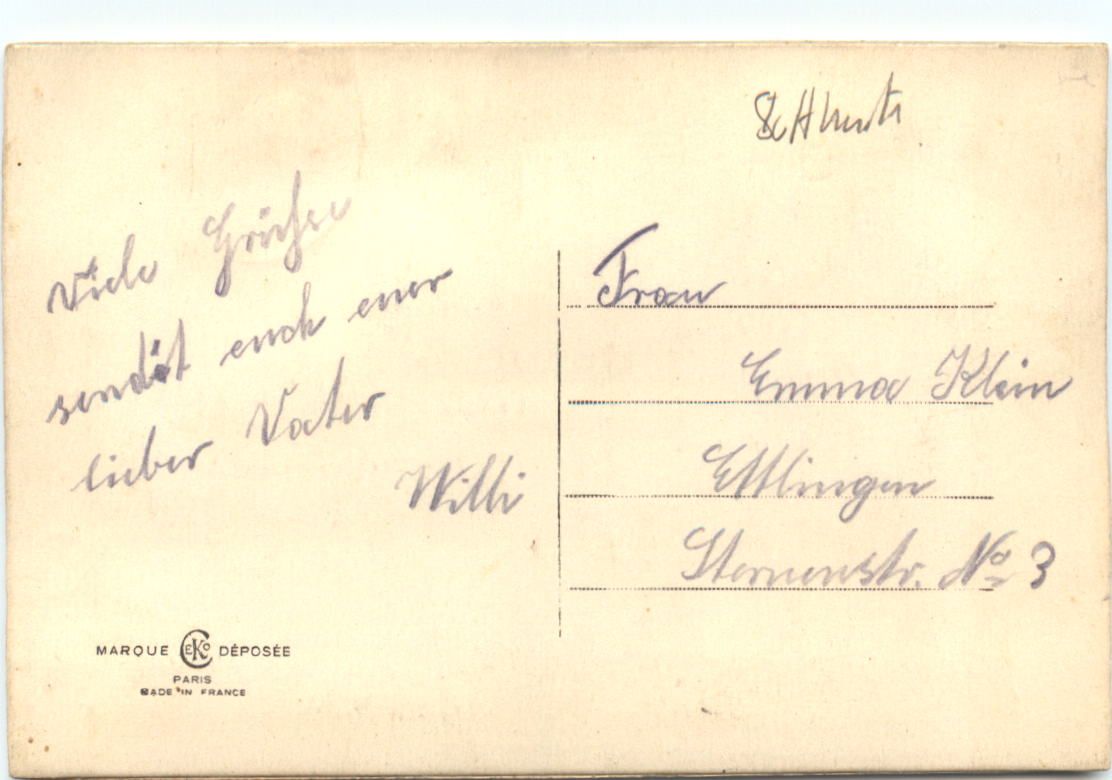 Viele Grüße
sendet euch euer
lieber Vater
Willi
Frau
Emma Klein
Ettlingen
Sternenstr. No 3
MARQUE CEKO DÉPOSÉE
PARIS
MADE IN FRANCE